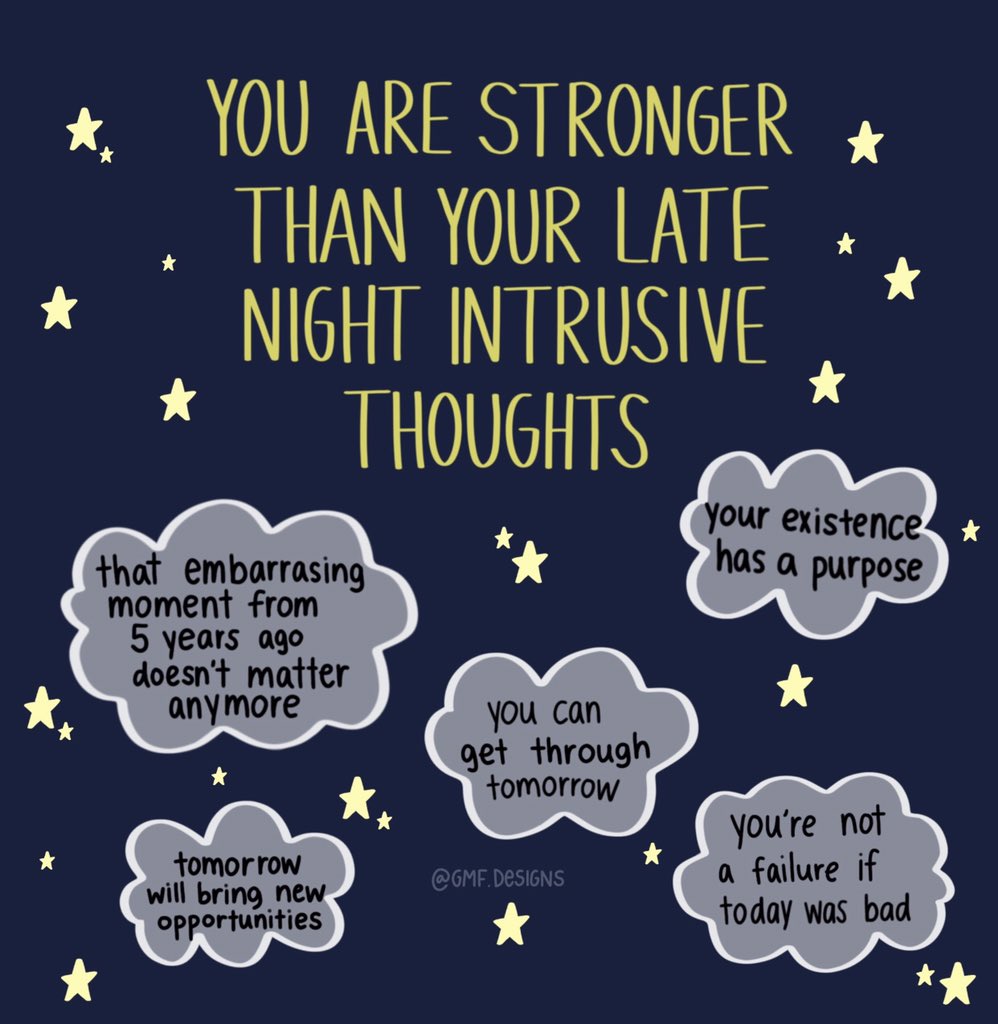 YOU ARE STRONGER
THAN YOUR LATE
NIGHT INTRUSIVE
THOUGHTS
your existence
has a purpose
that embarrasing
moment from
5 years ago
doesn't matter
anymore
you can
get through
tomorrow
you're not
a failure if
today was bad
tomorrow
will bring new
opportunities
@GMF.DESIGNS